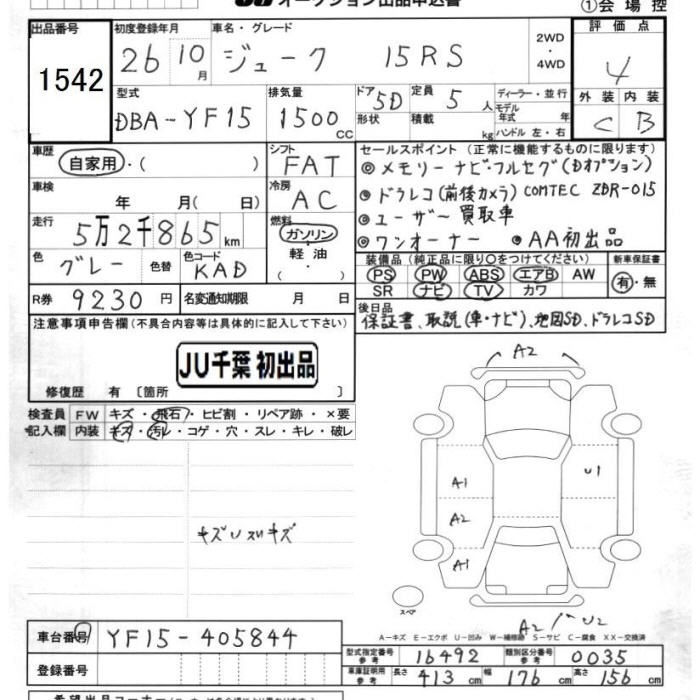 オークション出品申込書
①会場控
出品番号
1542
初度登録年月
26 10月
車名・グレード
ジューク 15RS
2WD
・
4WD
評価点
4
型式
DBA-YF15
排気量
1500 CC
ドア 5D
形状
定員 5人
積載 kg
ディーラー・並行
モデル年式 年
ハンドル 左・右
外装 内装
C B
車歴
自家用・( )
シフト
FAT
車検
年 月( 日)
冷房
AC
走行
5万2千865km
燃料
ガソリン・軽油・
色
グレー
色替
色コード
KAD
R券 9230円
名変通知期限 月 日
セールスポイント (正常に機能するものに限ります)
◎メモリーナビ・フルセグ(Dオプション)
◎ドラレコ(前後カメラ) COMTEC ZDR-015
◎ユーザー買取車
◎ワンオーナー ◎AA初出品
装備品 (純正品に限り○をつけてください)
PS PW ABS エアB AW
SR ナビ TV カワ
新車保証書
有・無
後日品
保証書、取説(車・ナビ)、地図SD、ドラレコSD
注意事項申告欄(不具合内容等は具体的に記入して下さい)
JU千葉 初出品
修復歴 有〔箇所 〕
検査員記入欄
FW キズ・飛石・ヒビ割・リペア跡・×要
内装 キズ・汚レ・コゲ・穴・スレ・キレ・破レ
A2
A1
U1
A2
A1
スペア
A2
U2
A-キズ E-エクボ U-凹み W-補修跡 S-サビ C-腐食 XX-交換済
車台番号 YF15-405844
登録番号
型式指定番号 参考 16492
類別区分番号 参考 0035
車庫証明用 参考 長さ 413cm 幅 176cm 高さ 156cm